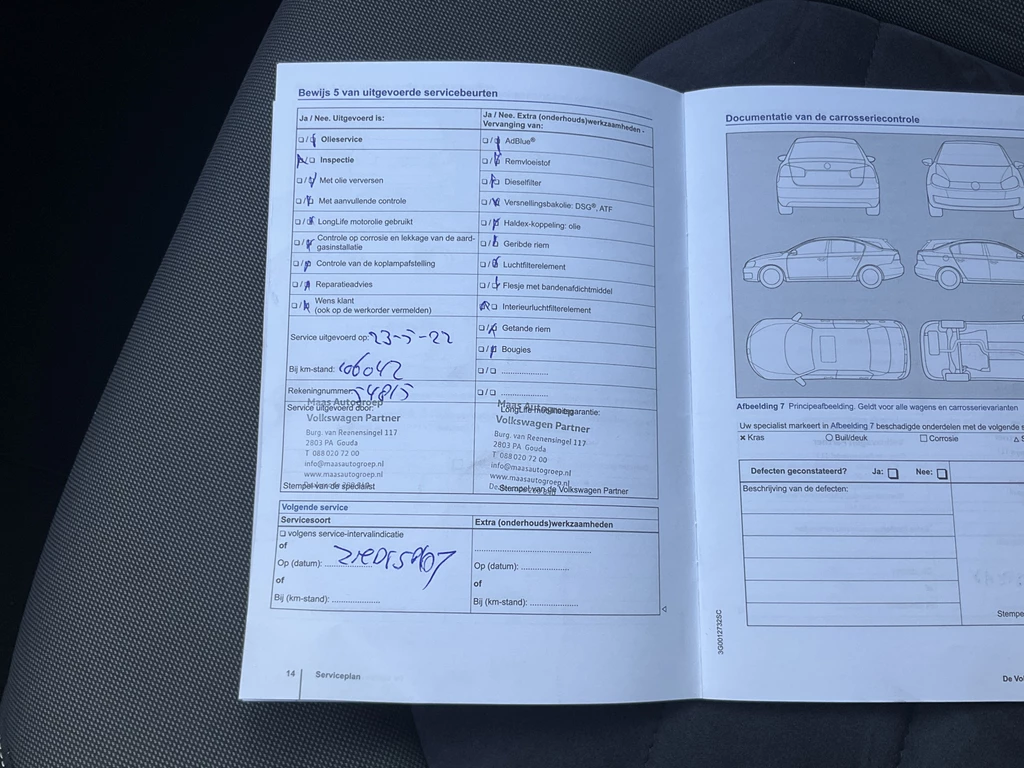 Bewijs 5 van uitgevoerde servicebeurten
Ja / Nee. Uitgevoerd is:
Olieservice
Inspectie
Met olie verversen
Met aanvullende controle
LongLife motorolie gebruikt
Controle op corrosie en lekkage van de aard-
gasinstallatie
Controle van de koplampafstelling
Reparatieadvies
Wens klant
(ook op de werkorder vermelden)
Ja / Nee. Extra (onderhouds)werkzaamheden -
Vervanging van:
AdBlue®
Remvloeistof
Dieselfilter
Versnellingsbakolie: DSG®, ATF
Haldex-koppeling: olie
Geribde riem
Luchtfilterelement
Flesje met bandenafdichtmiddel
Interieurluchtfilterelement
Getande riem
Bougies
Service uitgevoerd op: 23-5-22
Bij km-stand: 106042
Rekeningnummer: 54815
Service uitgevoerd door:
Maas Autogroep
Volkswagen Partner
Burg. van Reenensingel 117
2803 PA Gouda
T 088 020 72 00
info@maasautogroep.nl
www.maasautogroep.nl
Stempel van de specialist
Maas Autogroep
Volkswagen Partner
Burg. van Reenensingel 117
2803 PA Gouda
T 088 020 72 00
info@maasautogroep.nl
www.maasautogroep.nl
Stempel van de Volkswagen Partner
Volgende service
Servicesoort
Extra (onderhouds)werkzaamheden
volgens service-intervalindicatie
of
Op (datum):
of
Bij (km-stand):
Op (datum):
of
Bij (km-stand):
14
Serviceplan
Documentatie van de carrosseriecontrole
Afbeelding 7 Principeafbeelding. Geldt voor alle wagens en carrosserievarianten
Uw specialist markeert in Afbeelding 7 beschadigde onderdelen met de volgende s
Kras
Buil/deuk
Corrosie
S
Defecten geconstateerd? Ja: Nee:
Beschrijving van de defecten:
Stempe
3G0012732SC
De Vo